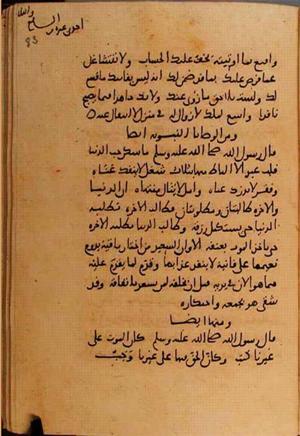 واقنع بما اوتيته يخف عليك الحساب ولا تتشاغل
عما فرض عليك بما قد ضمن لك انه ليس بفائتك ما قسم
لك ولست بلاحق ما زوي عنك ولا تك جاهدا فيما يصبح
نافدا واسع لملك لا زوال له في منزل لا انتقال عنه
ومن الوصايا النبوية ايضا
قال رسول الله صلى الله عليه وسلم ما سكن حب الدنيا
قلب عبد الا التاط منها بثلاث شغل لا ينفد عناه
وفقر لا يدرك غناه وامل لا ينال منتهاه ان الدنيا
والاخرة طالبتان ومطلوبتان فطالب الاخرة تطلبه
الدنيا حتى يستكمل رزقه وطالب الدنيا تطلبه الاخرة
حتى ياخذ الموت بعنقه الا وان السعيد من اختار باقية يدوم
نعيمها على فانية لا ينفد عذابها وقدم لما يقدم عليه
مما هو الان في يديه قبل ان يخلفه لمن يسعد بانفاقه وقد
شقي هو بجمعه واحتكاره
ومنها ايضا
قال رسول الله صلى الله عليه وسلم كان الموت على
غيرنا كتب وكان الحق فيها على غيرنا وجب